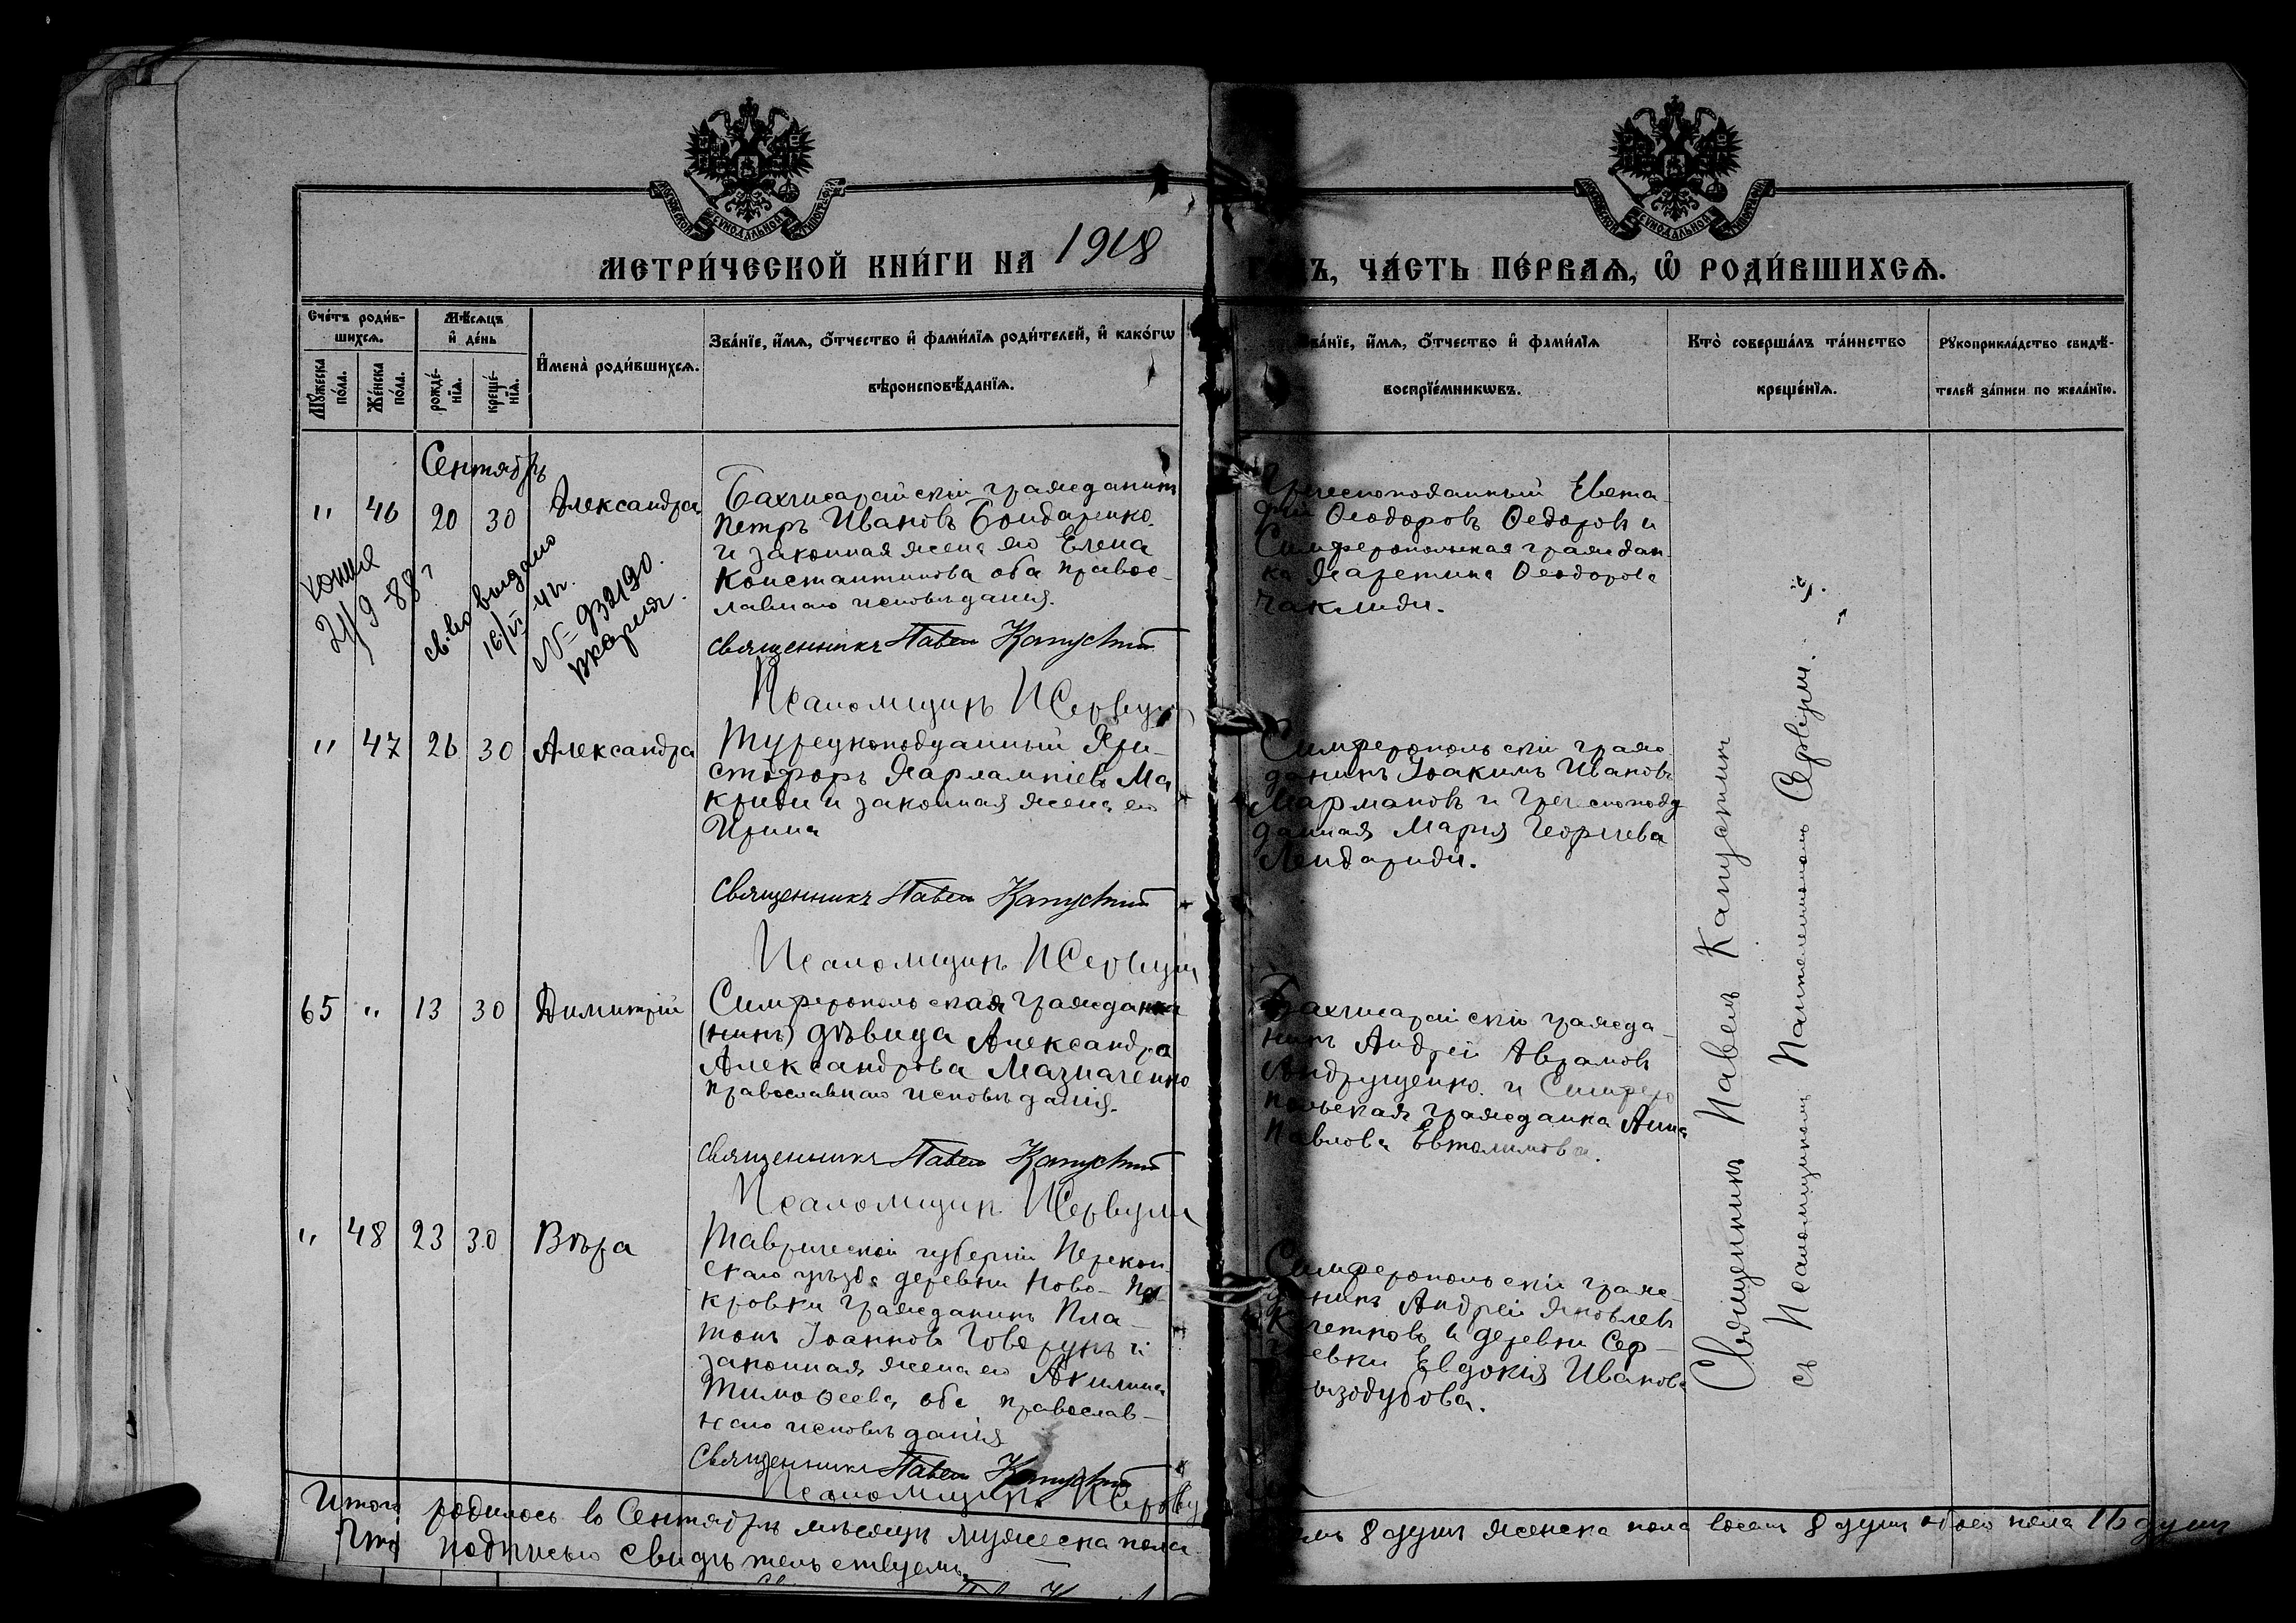 МЕТРИ́ЧЕСКОЙ КНИ́ГИ НА 1918
Ъ, ЧА́СТЬ ПЕ́РВАѦ, Ѡ РОДИ́ВШИХСѦ.
Сче́тъ роди́в-
шихсѧ.
Мꙋжеска по́ла.
Же́нска по́ла.
Мѣ́сѧцъ
и҆ де́нь
рожде́-
нїѧ.
креще́-
нїѧ.
И҆мена̀ роди́вшихсѧ.
Зва́нїе, и҆́мѧ, ѻ҆́тчество и҆ фами́лїѧ роди́телей, и҆ како́гѡ
вѣроисповѣ́данїѧ.
Зва́нїе, и҆́мѧ, ѻ҆́тчество и҆ фами́лїѧ
воспрїе́мникѡвъ.
Кто̀ соверша́лъ та́инство
креще́нїѧ.
Рꙋкоприкла́дство свидѣ́-
телей за́писи по жела́нїю.
Сентябрь
" 46 20 30 Александра
Бахчисарайскій гражданинъ
Петръ Ивановъ Бондаренко
и законная жена его Елена
Константинова оба правос-
лавнаго исповѣданія.
Священникъ Павел Капустин
Псаломщикъ П Сервули
копия
21/9-88 г
св-во выдано
16/VI-41 г.
№ 932190.
Греческоподданный Евста-
фій Ѳеодоровъ Ѳедоровъ и
Симферопольская граждан-
ка Харетина Ѳеодорова
Чаклиди.
" 47 26 30 Александра
Турецкоподданный Хри-
стофоръ Харлампіевъ Ма
криди и законная жена его
Ирина
Священникъ Павел Капустин
Псаломщикъ П Сервули
Симферопольскій граж-
данинъ Іоакимъ Ивановъ
Мармановъ и Греческоподд
данная Марія Георгіева
Лендариди.
65 " 13 30 Димитрій
Симферопольская гражданка
(нинъ) дѣвица Александра
Александрова Мазначенко
православнаго исповѣданія.
Священникъ Павел Капустин
Псаломщикъ П Сервули
Бахчисарайскій гражда-
нинъ Андрей Аврамовъ
Андрущенко и Симферо
польская гражданка Анна
Павлова Евтолимова.
" 48 23 30 Вѣра
Таврической губерніи Перекоп-
скаго уѣзда деревни Ново-По
кровки гражданинъ Пла-
тонъ Іоанновъ Говорунъ и
законная жена его Акилина
Тимоѳеева оба православ-
наго исповѣданія
Священникъ Павел Капустин
Псаломщикъ П Серву
Симферопольскій граж-
данинъ Андрей Яковлевъ
и деревни Сер-
Евдокія Иванова
Священникъ Павелъ Капустинъ
съ Псаломщикомъ Пантелеимономъ Сервули.
Итого родилось въ Сентябрѣ мѣсяцѣ мужеска пола
8 душъ женска пола восемь 8 душъ обоего пола 16 душъ
подписью свидѣтельствуемъ.